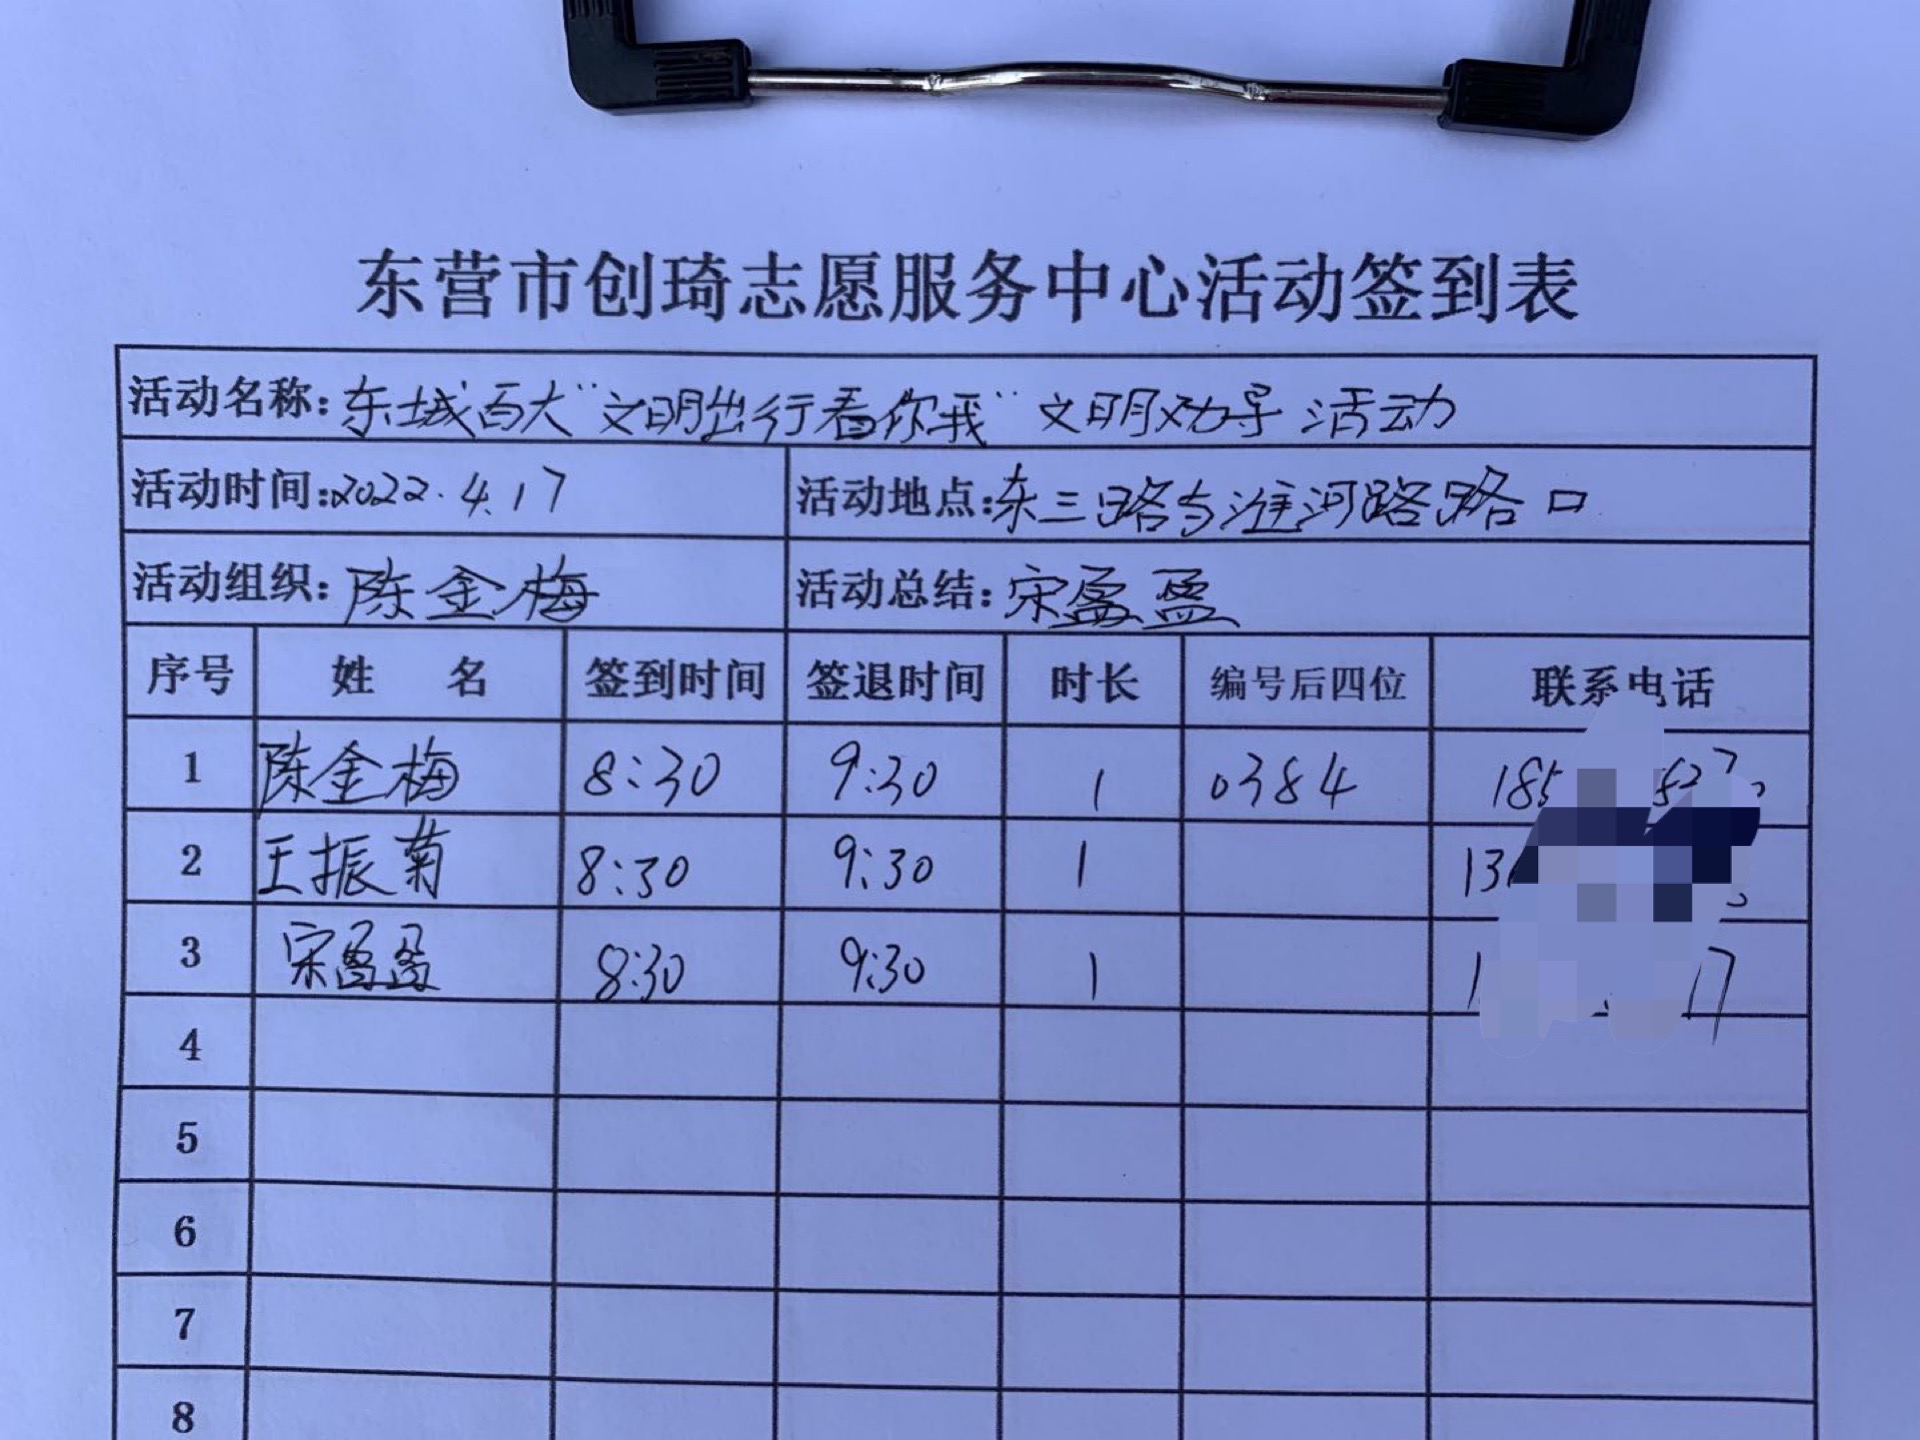 东营市创琦志愿服务中心活动签到表
活动名称：东城百大“文明出行看你我”文明劝导活动
活动时间：2022.4.17 活动地点：东三路与淮河路路口
活动组织：陈金梅 活动总结：宋盈盈
序号 姓名 签到时间 签退时间 时长 编号后四位 联系电话
1 陈金梅 8:30 9:30 1 0384 185
2 王振菊 8:30 9:30 1 13
3 宋盈盈 8:30 9:30 1 1 17
4
5
6
7
8